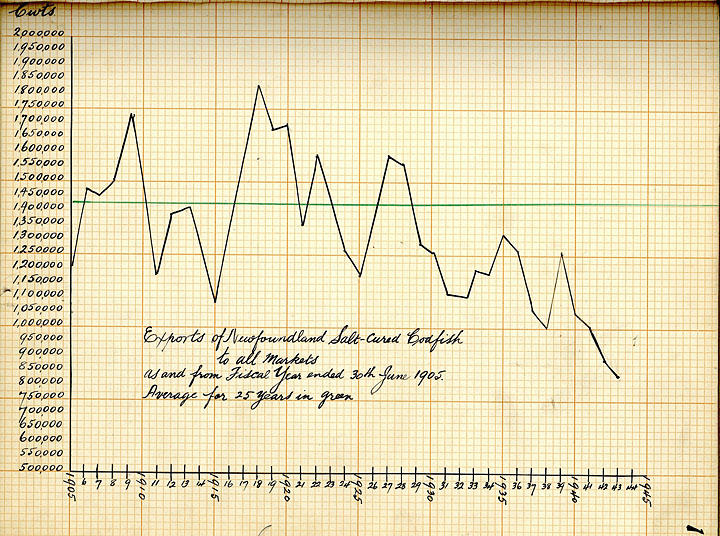 Cwts.
2,000,000
1,950,000
1,900,000
1,850,000
1,800,000
1,750,000
1,700,000
1,650,000
1,600,000
1,550,000
1,500,000
1,450,000
1,400,000
1,350,000
1,300,000
1,250,000
1,200,000
1,150,000
1,100,000
1,050,000
1,000,000
950,000
900,000
850,000
800,000
750,000
700,000
650,000
600,000
550,000
500,000
Exports of Newfoundland Salt-Cured Codfish
to all Markets
as and from Fiscal Year ended 30th June 1905.
Average for 25 years in green
1905 6 7 8 9 1910 11 12 13 14 1915 16 17 18 19 1920 21 22 23 24 1925 26 27 28 29 1930 31 32 33 34 1935 36 37 38 39 1940 41 42 43 44 1945
1